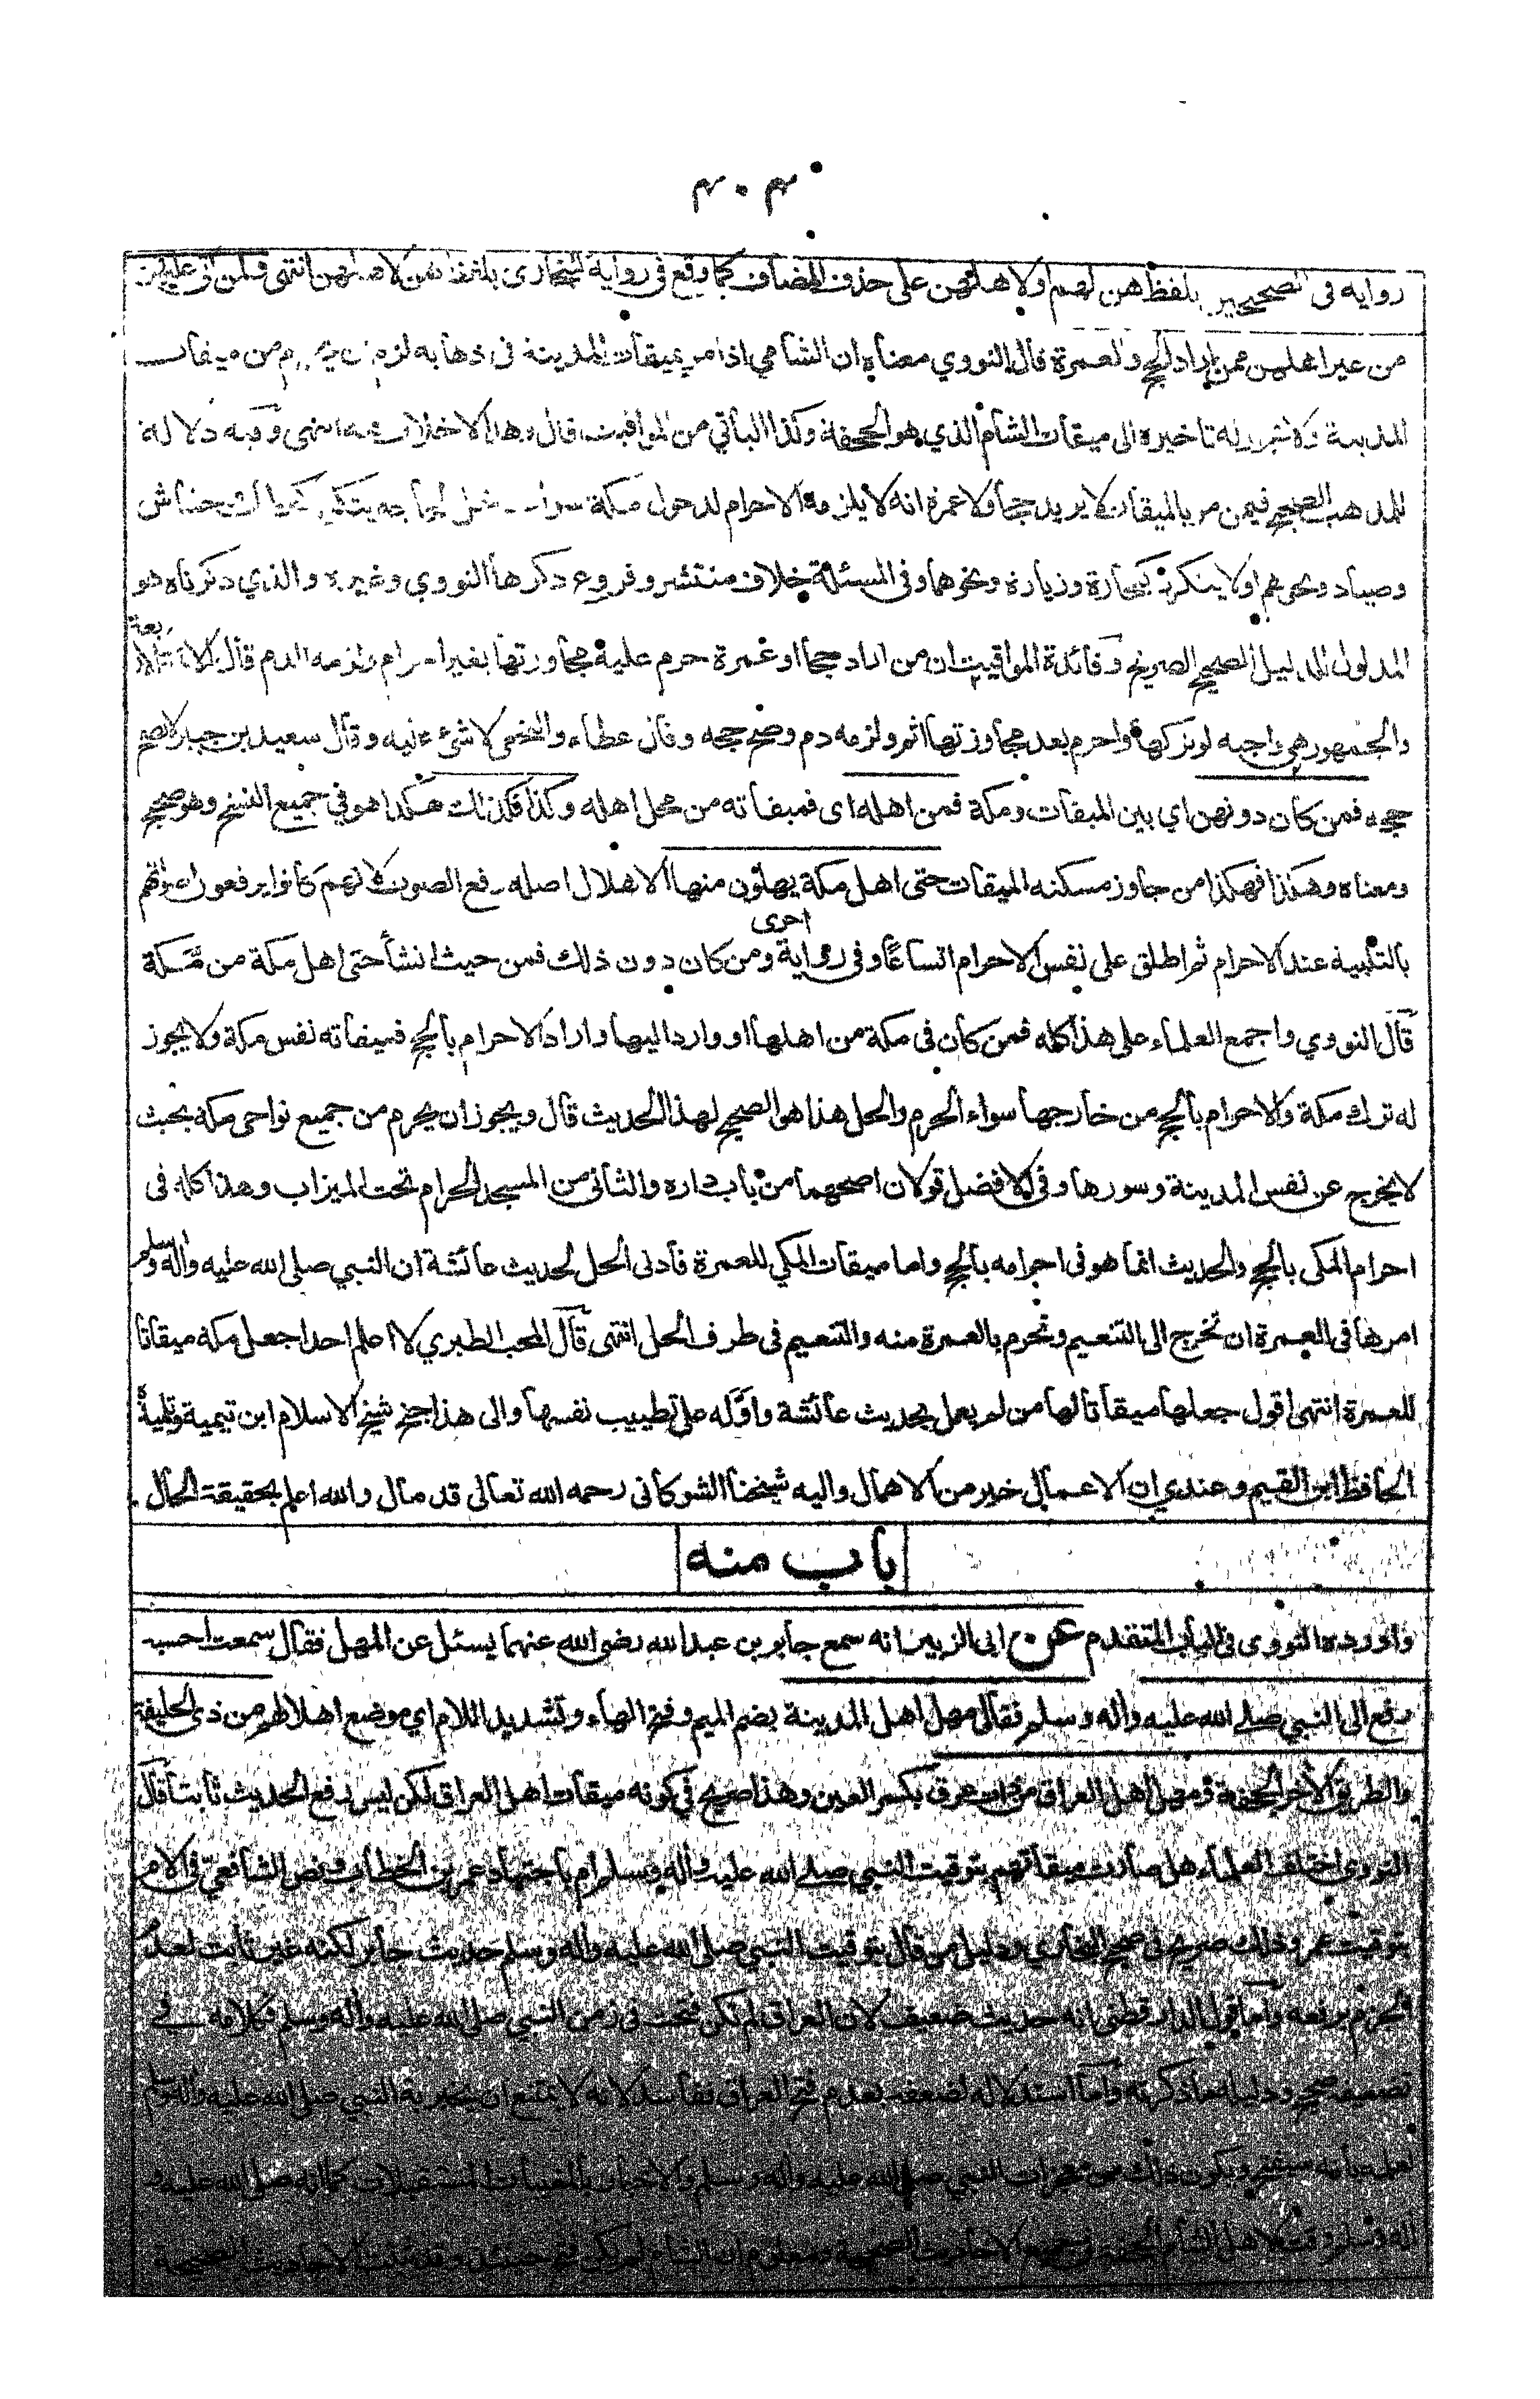 ٤٠٣
رواية فى الصحيحين بلفظ هن لهم اولاهلهن على حذف المضاف كما وقع فى رواية البخارى بلفظ هن لاهلهن انتهى ولمن اتى عليهن
من غير اهلهن ممن اراد الحج والعمرة قال النووي معناه ان الشامي اذا مر بميقات المدينة فى ذهابه لزمه ان يحرم من ميقات
المدينة تاخيره الى ميقات الشام الذي هو الجحفة وكذا الباقي من المواقيت قال وهذا لاخلاف فيه انتهى وفيه دلالة
للمذهب الصحيح فيمن مر بالميقات لا يريد حجا ولا عمرة انه لا يلزمه الاحرام لدخول مكة سواء دخل لحاجة يتكرر كحطاب حشاش
وصياد ونحوهم اولا يتكرر كتجارة وزيارة ونحوهما وفى المسئلة خلاف منتشر وفروع ذكرها النووي وغيره والذي ذكرناه هو
المدلول للدليل الصحيح الصريح وفائدة المواقيت ان من اراد حجا او عمرة حرم عليه مجاوزتها بغير احرام ولزمه الدم قال الائمة الاربعة
والجمهور هي واجبه لو تركها واحرم بعد مجاوزتها اثم ولزمه دم وصح حجه وقال عطاء والنخعى لا شئ عليه وقال سعيد بن جبير لا يصح
حجه فمن كان دونهن اي بين الميقات ومكة فمن اهله اى فميقاته من محل اهله وكذا فكذلك هكذا هو في جميع النسخ وهو صحيح
ومعناه وهكذا فهكذا من جاوز مسكنه الميقات حتى اهل مكة يهلون منها الاهلال اصله رفع الصوت لانهم كانوا يرفعون اصواتهم
بالتلبية عند الاحرام ثم اطلق على نفس الاحرام اتساعًا وفى رواية اخرى ومن كان دون ذلك فمن حيث انشأ حتى اهل مكة من مكة
قال النووي واجمع العلماء على هذا كله فمن كان فى مكة من اهلها او واردا اليها واراد الاحرام بالحج فميقاته نفس مكة ولا يجوز
له ترك مكة والاحرام بالحج من خارجها سواء الحرم والحل هذا هو الصحيح لهذا الحديث قال ويجوز ان يحرم من جميع نواحى مكة بحيث
لا يخرج عن نفس المدينة وسورها وفى الافضل قولان اصحهما من باب داره والثانى من المسجد الحرام تحت الميزاب وهذا كله فى
احرام المكى بالحج والحديث انما هو فى احرامه بالحج واما ميقات المكي للعمرة فادنى الحل لحديث عائشة ان النبي صلى الله عليه واله وسلم
امرها فى العمرة ان تخرج الى التنعيم وتحرم بالعمرة منه والتنعيم فى طرف الحل انتهى قال المحب الطبري لا اعلم احدا جعل مكة ميقاتا
للعمرة انتهى اقول جعلها ميقاتا لها من لم يعمل بحديث عائشة واوّله على تطييب نفسها والى هذا جنح شيخ الاسلام ابن تيمية وتلميذه
الحافظ ابن القيم وعندي ان الاعمال خير من الاهمال واليه شيخنا الشوكانى رحمه الله تعالى قد مال والله اعلم بحقيقة الحال
باب منه
واورده النووى فى الباب المتقدم عن ابى الزبير انه سمع جابر بن عبد الله رضى الله عنهما يسئل عن المهل فقال سمعت احسبه
رفع الى النبي صلى الله عليه واله وسلم فقال مهل اهل المدينة بضم الميم وفتح الهاء وتشديد اللام اي موضع اهلالهم من ذى الحليفة
والطريق الأخر الجحفة ومهل اهل العراق من ذات عرق بكسر العين وهذا صريح في كونه ميقات اهل العراق لكن ليس رفع الحديث ثابتا قال
النووى اختلف العلماء هل صارت ميقاتهم بتوقيت النبي صلى الله عليه واله وسلم ام باجتهاد عمر بن الخطاب ونص الشافعيّ فى الام
بتوقيت عمر وذلك صريح فى صحيح البخاري ودليل من قال بتوقيت النبي صلى الله عليه واله وسلم حديث جابر لكنه غير ثابت لعدم
الجزم برفعه واما قول الدارقطنى انه حديث ضعيف لان العراق لم تكن فتحت فى زمن النبي صلى الله عليه واله وسلم فكلامه فى
تضعيفه صحيح ودليله ما ذكرته واما استدلاله لضعفه بعدم فتح العراق ففاسد لانه لا يمتنع ان يخبر به النبي صلى الله عليه واله وسلم
لعلمه بانه سيفتح ويكون ذلك من معجزات النبي صلى الله عليه واله وسلم والاخبار بالمغيبات المستقبلات كما انه صلى الله عليه و
اله وسلم وقت لاهل الشام الجحفة فى جميع الاحاديث الصحيحة ومعلوم ان الشام لم يكن فتح حينئذ وقد ثبتت الاحاديث الصحيحة